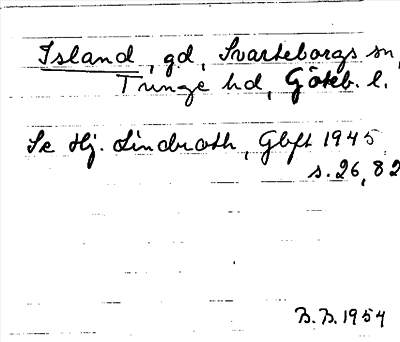 Island, gd, Svarteborgs sn,
Tunge hd, Göteb. l.
Se Hj. Lindroth, Gbft 1945
s. 26, 82
B.B. 1954